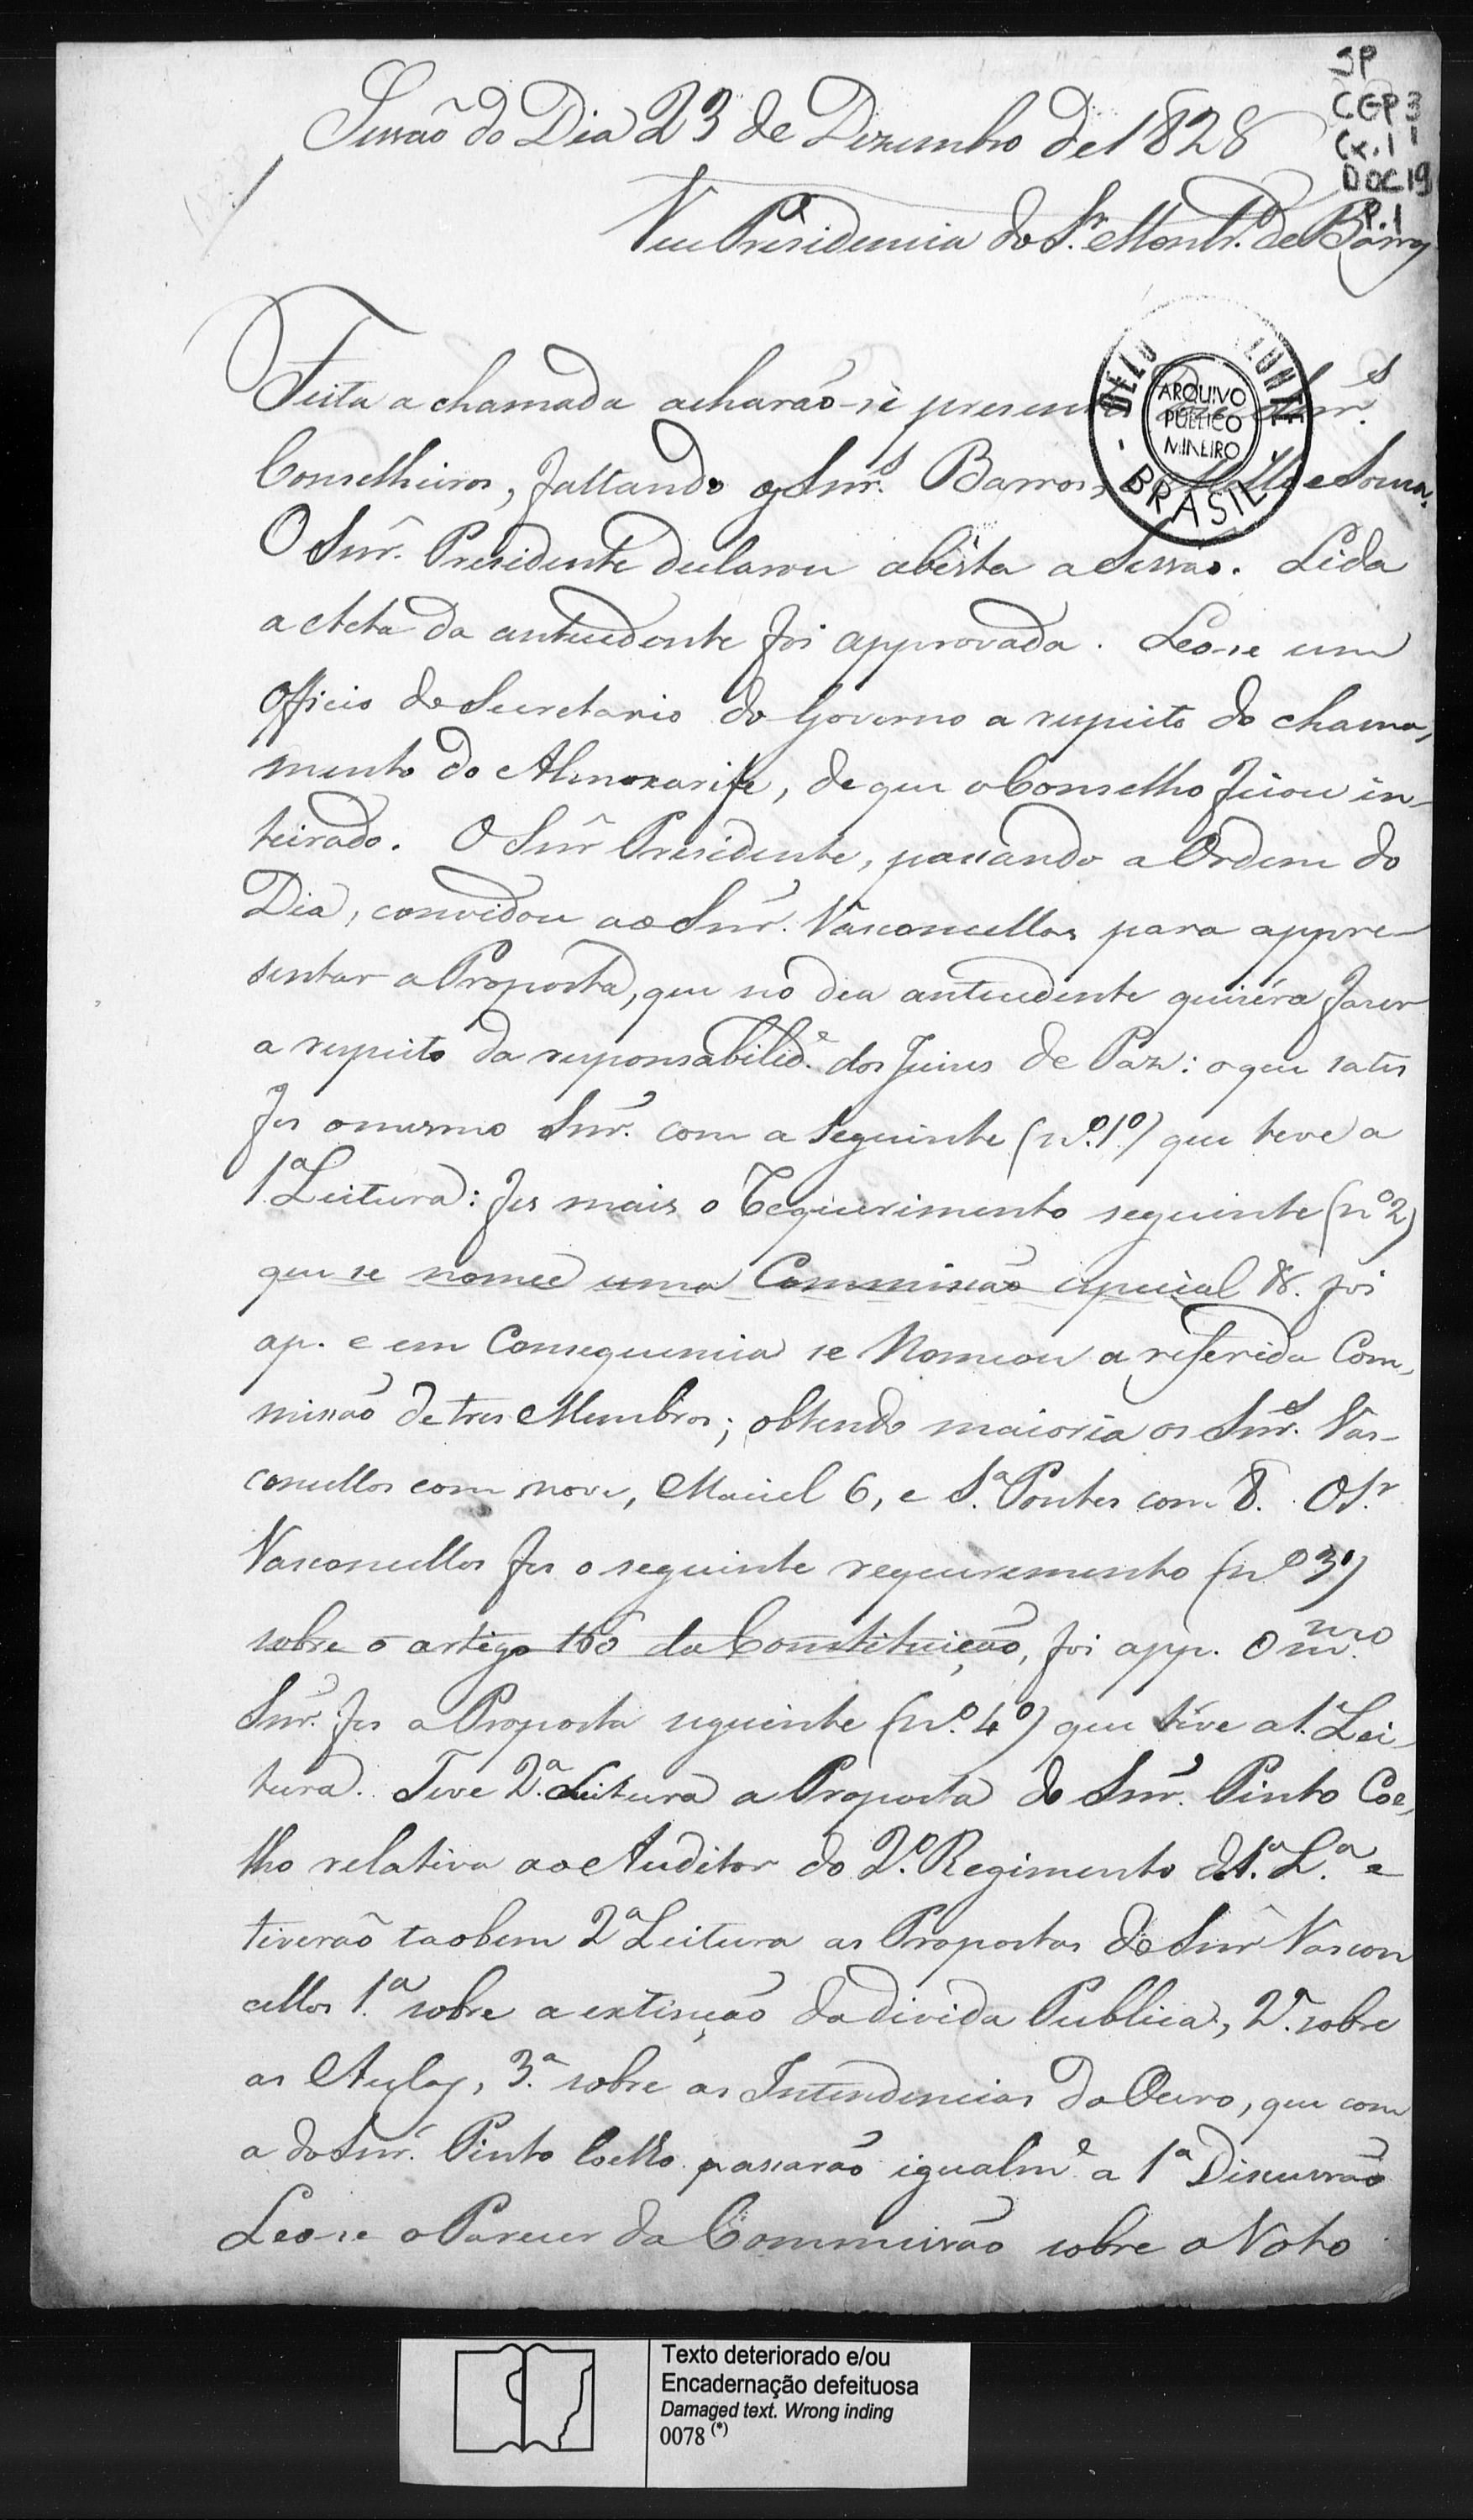 SP
CGP3
Cx.11
DOC19
P.1
Sessão do Dia 23 de Dezembro de 1828
Vice Presidencia do Sr. Montr.º de Barros
Feita a chamada acharão-se presentes Snr.s
Conselheiros, faltando os Snr.s Barros, Mello e Souza.
O Snr. Presidente declarou aberta a Sessão. Lida
a Acta da antecedente foi approvada. Leo-se um
Officio do Secretario do Governo a respeito do chama,
mento do Almoxarife, de que o Conselho ficou in-
teirado. O Snr Presidente, passando a Ordem do
Dia, convidou ao Snr. Vasconcellos para appre-
sentar a Proposta, que no dia antecedente quizéra fazer
a respeito da responsabilid.e dos Juizes de Paz: o que satis
fes o mesmo Snr. com a seguinte (nº.1º) que teve a
1ª Leitura: fes mais o Requerimento seguinte (nº2)
que se nomee uma Commissão especial &. foi
ap. e em Consequencia se Nomeou a referida Com,
missão de tres Membros; obtendo maioria os Snr.s Vas-
concellos com nove, Maciel 6, e S.ª Pontes com 8. O S.r
Vasconcellos fes o seguinte requerimento (nº 3º)
sobre o artigo 160 da Constituição, foi app. O m.mo
Snr. fes a Proposta seguinte (nº. 4º) que teve a 1.ª Lei,
tura. Teve 2.ª Leitura a Proposta do Snr. Pinto Coe,
lho relativa ao Auditor do 2.º Regimento de 1.ª L.ª e
tiverão taobem 2ª Leitura as Propostas do Snr Vascon
cellos 1.ª sobre a extincção da divida Publica, 2.ª sobre
as Aulas, 3.ª sobre as Intendencias do Ouro, que com
a do Snr. Pinto Coelho passarão igualm.e a 1ª Discussão
Leo-se o Parecer da Commissão sobre o Voto
BELO
ZONTE
ARQUIVO
PUBLICO
MINEIRO
- BRASIL -
Texto deteriorado e/ou
Encadernação defeituosa
Damaged text. Wrong inding
0078 (*)